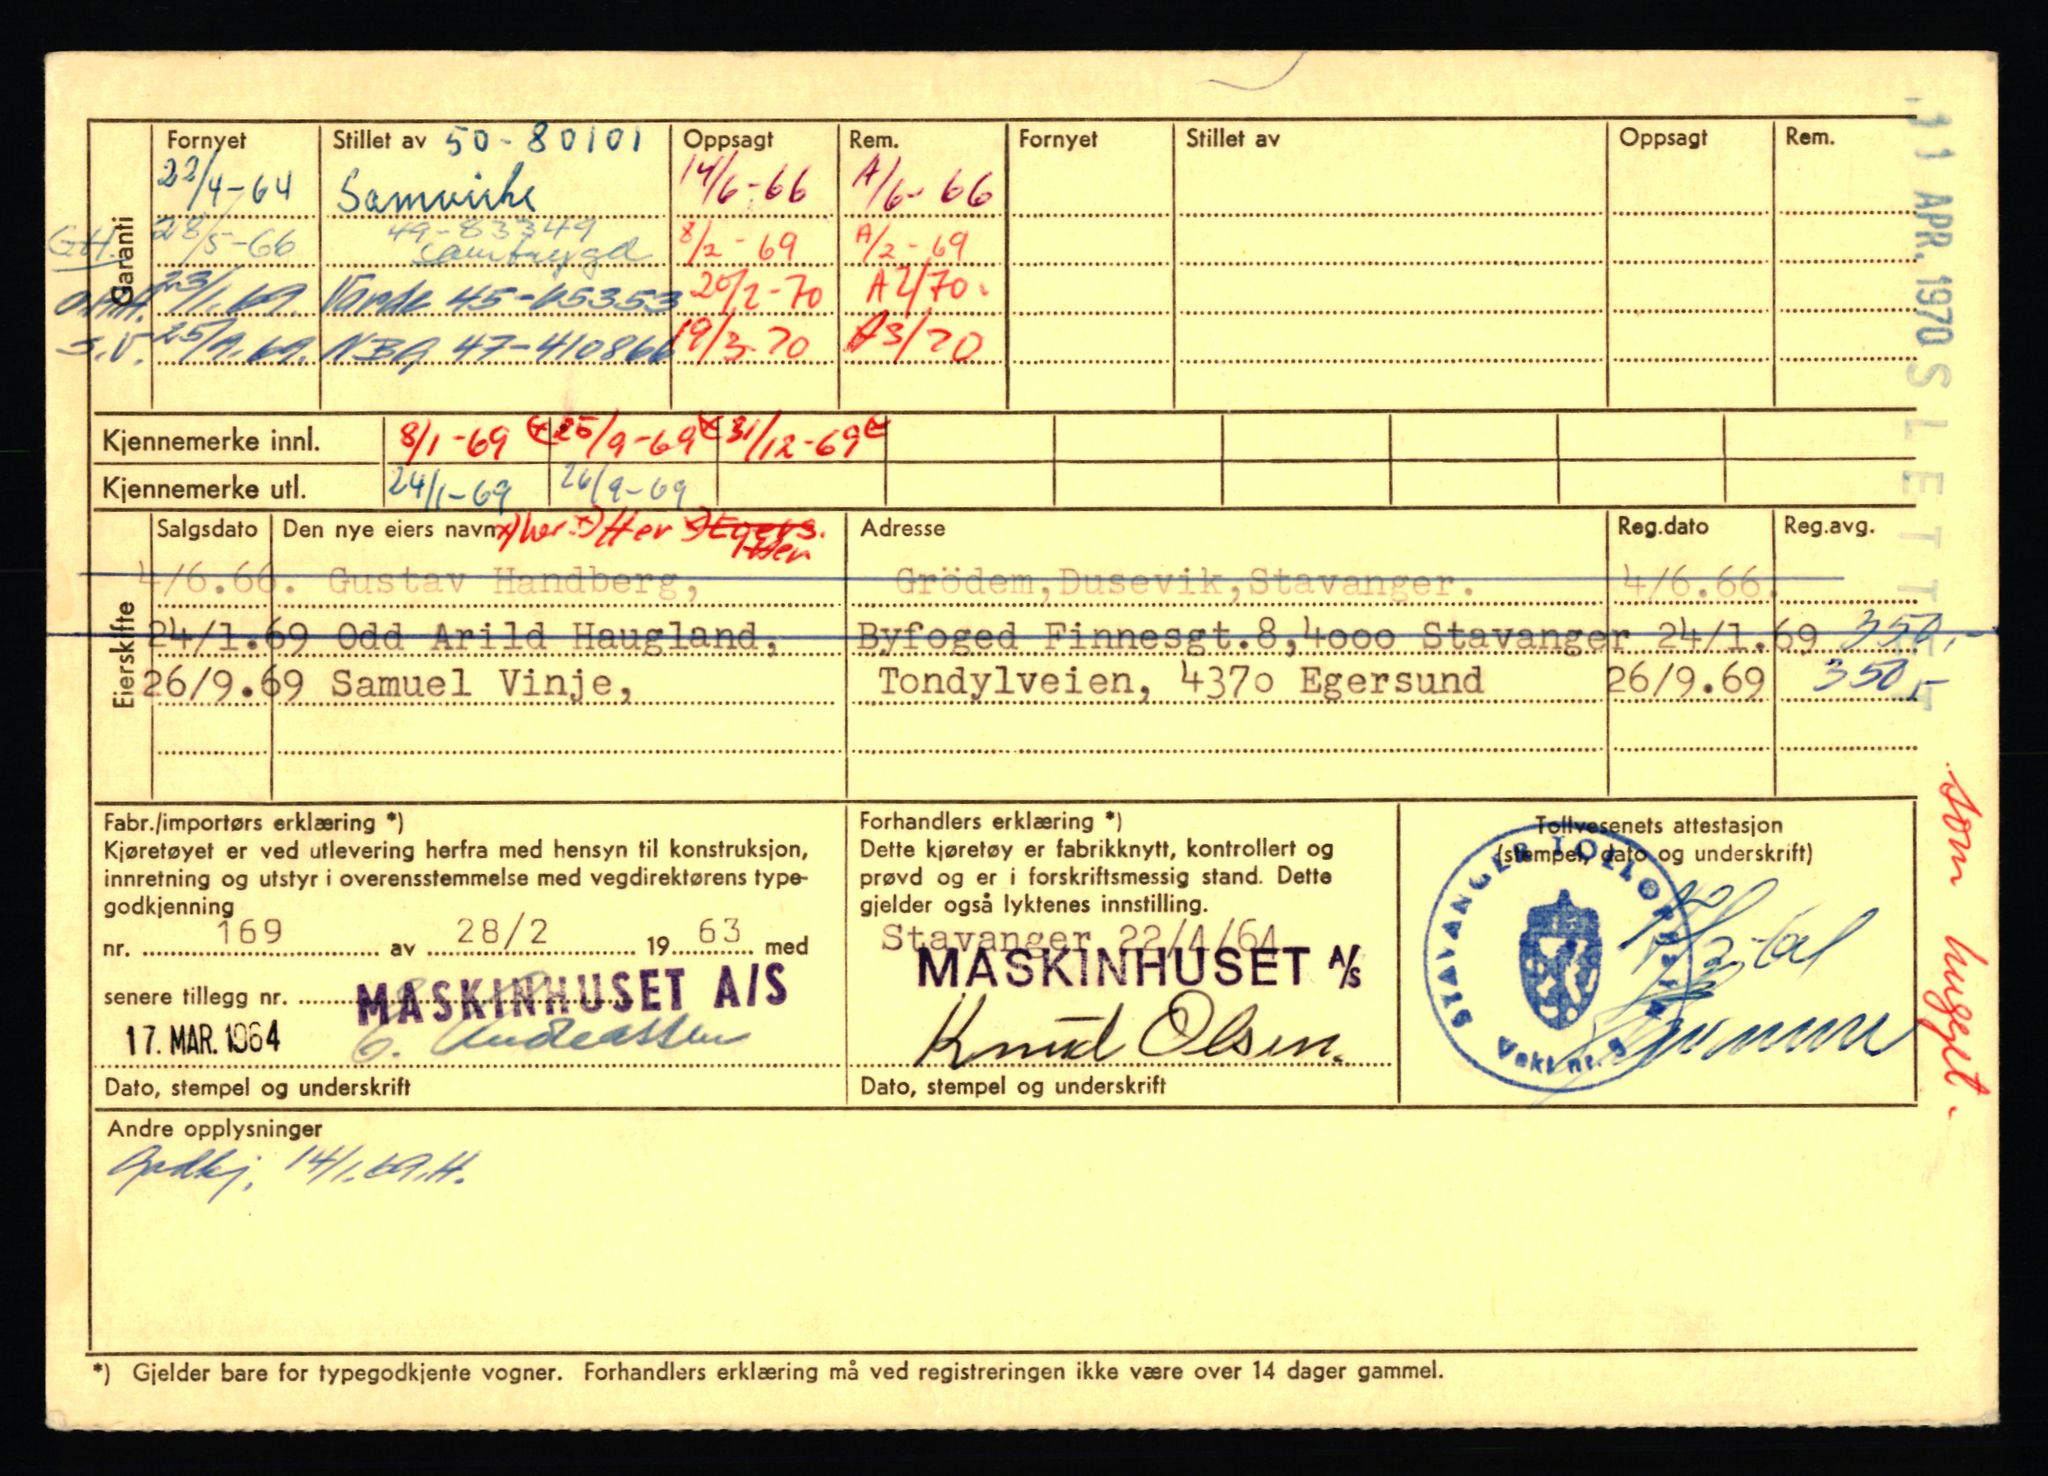 Garanti
Fornyet Stillet av 50-80101 Oppsagt Rem. Fornyet Stillet av Oppsagt Rem.
22/4-64 Samvirke 14/6-66 A/6-66
G.H. 28/5-66 49-83349 Samtrygd 8/2-69 A/2-69
23/1.69. Varde 45-65353 20/2-70 A2/70.
S.V. 25/9.69. NBA 47-410866 19/3-70 A3/70
Kjennemerke innl. 8/1-69 25/9-69 31/12-69
Kjennemerke utl. 24/1-69 26/9-69
Eierskifte
Salgsdato Den nye eiers navn x) her. x) Her x) Egers. Her Adresse Reg.dato Reg.avg.
4/6.66. Gustav Handberg, Grödem,Dusevik,Stavanger. 4/6.66.
24/1.69 Odd Arild Haugland, Byfoged Finnesgt.8,4000 Stavanger 24/1.69 350,-
26/9.69 Samuel Vinje, Tondylveien, 4370 Egersund 26/9.69 350,-
31 APR. 1970 SLETTET
som hugget.
Fabr./importørs erklæring *)
Kjøretøyet er ved utlevering herfra med hensyn til konstruksjon,
innretning og utstyr i overensstemmelse med vegdirektørens type-
godkjenning
nr. 169 av 28/2 19 63 med
senere tillegg nr.
MASKINHUSET A/S
17. MAR. 1964 Andreassen
Dato, stempel og underskrift
Forhandlers erklæring *)
Dette kjøretøy er fabrikknytt, kontrollert og
prøvd og er i forskriftsmessig stand. Dette
gjelder også lyktenes innstilling.
Stavanger 22/4/64
MASKINHUSET A/S
Knud Olsen.
Dato, stempel og underskrift
Tollvesenets attestasjon
(stempel, dato og underskrift)
STAVANGER TOLLDISTRIKT
Vekt nr. 9
Andre opplysninger
Godkj. 14/1.69.H.
*) Gjelder bare for typegodkjente vogner. Forhandlers erklæring må ved registreringen ikke være over 14 dager gammel.